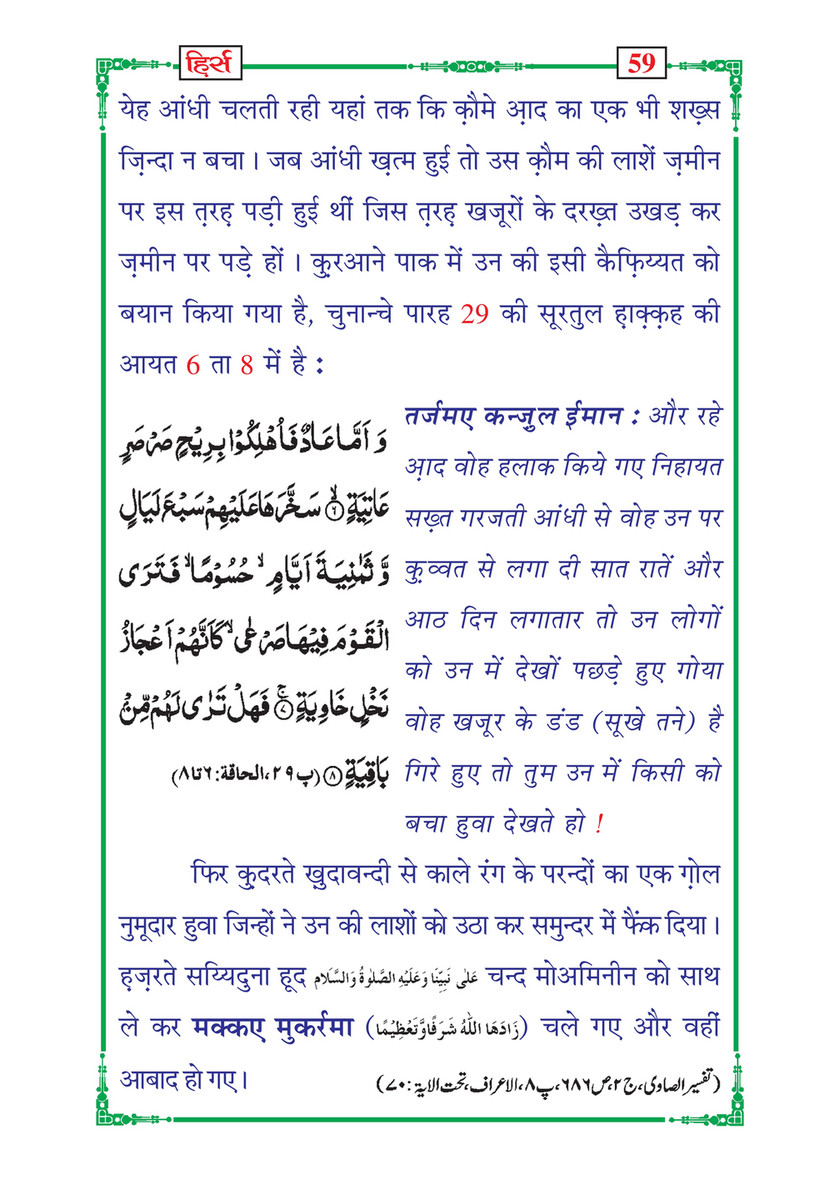 हिर्स
59
येह आंधी चलती रही यहां तक कि क़ौमे आ़द का एक भी शख़्स
ज़िन्दा न बचा । जब आंधी ख़त्म हुई तो उस क़ौम की लाशें ज़मीन
पर इस त़रह़ पड़ी हुई थीं जिस त़रह़ खजूरों के दरख़्त उखड़ कर
ज़मीन पर पड़े हों । क़ुरआने पाक में उन की इसी कैफ़िय्यत को
बयान किया गया है, चुनान्चे पारह 29 की सूरतुल ह़ाक़्क़ह की
आयत 6 ता 8 में है :
وَ اَمَّا عَادٌ فَاُهْلِكُوْا بِرِیْحٍ صَرْصَرٍ
عَاتِیَةٍۙ۝۶ سَخَّرَهَا عَلَیْهِمْ سَبْعَ لَیَالٍ
وَّ ثَمٰنِیَةَ اَیَّامٍۙ حُسُوْمًاۙ فَتَرَى
الْقَوْمَ فِیْهَا صَرْعٰىۙ كَاَنَّهُمْ اَعْجَازُ
نَخْلٍ خَاوِیَةٍۚ۝۷ فَهَلْ تَرٰى لَهُمْ مِّنْۢ
بَاقِیَةٍ۝۸ (پ۲۹،الحاقة:۶تا۸)
तर्जमए कन्जुल ईमान : और रहे
आ़द वोह हलाक किये गए निहायत
सख़्त गरजती आंधी से वोह उन पर
क़ुव्वत से लगा दी सात रातें और
आठ दिन लगातार तो उन लोगों
को उन में देखों पछड़े हुए गोया
वोह खजूर के डंड (सूखे तने) है
गिरे हुए तो तुम उन में किसी को
बचा हुवा देखते हो !
फिर क़ुदरते ख़ुदावन्दी से काले रंग के परन्दों का एक ग़ोल
नुमूदार हुवा जिन्हों ने उन की लाशों को उठा कर समुन्दर में फैंक दिया ।
ह़ज़रते सय्यिदुना हूद عَلٰى نَبِیِّنَا وَعَلَیْهِ الصَّلٰوةُ وَالسَّلَام चन्द मोअमिनीन को साथ
ले कर मक्कए मुकर्रमा (زَادَهَا اللّٰهُ شَرَفًا وَّتَعْظِیْمًا) चले गए और वहीं
आबाद हो गए । (تفسیر الصاوی،ج۲،ص۶۸۶،پ۸،الاعراف،تحت الایة:۷۰)